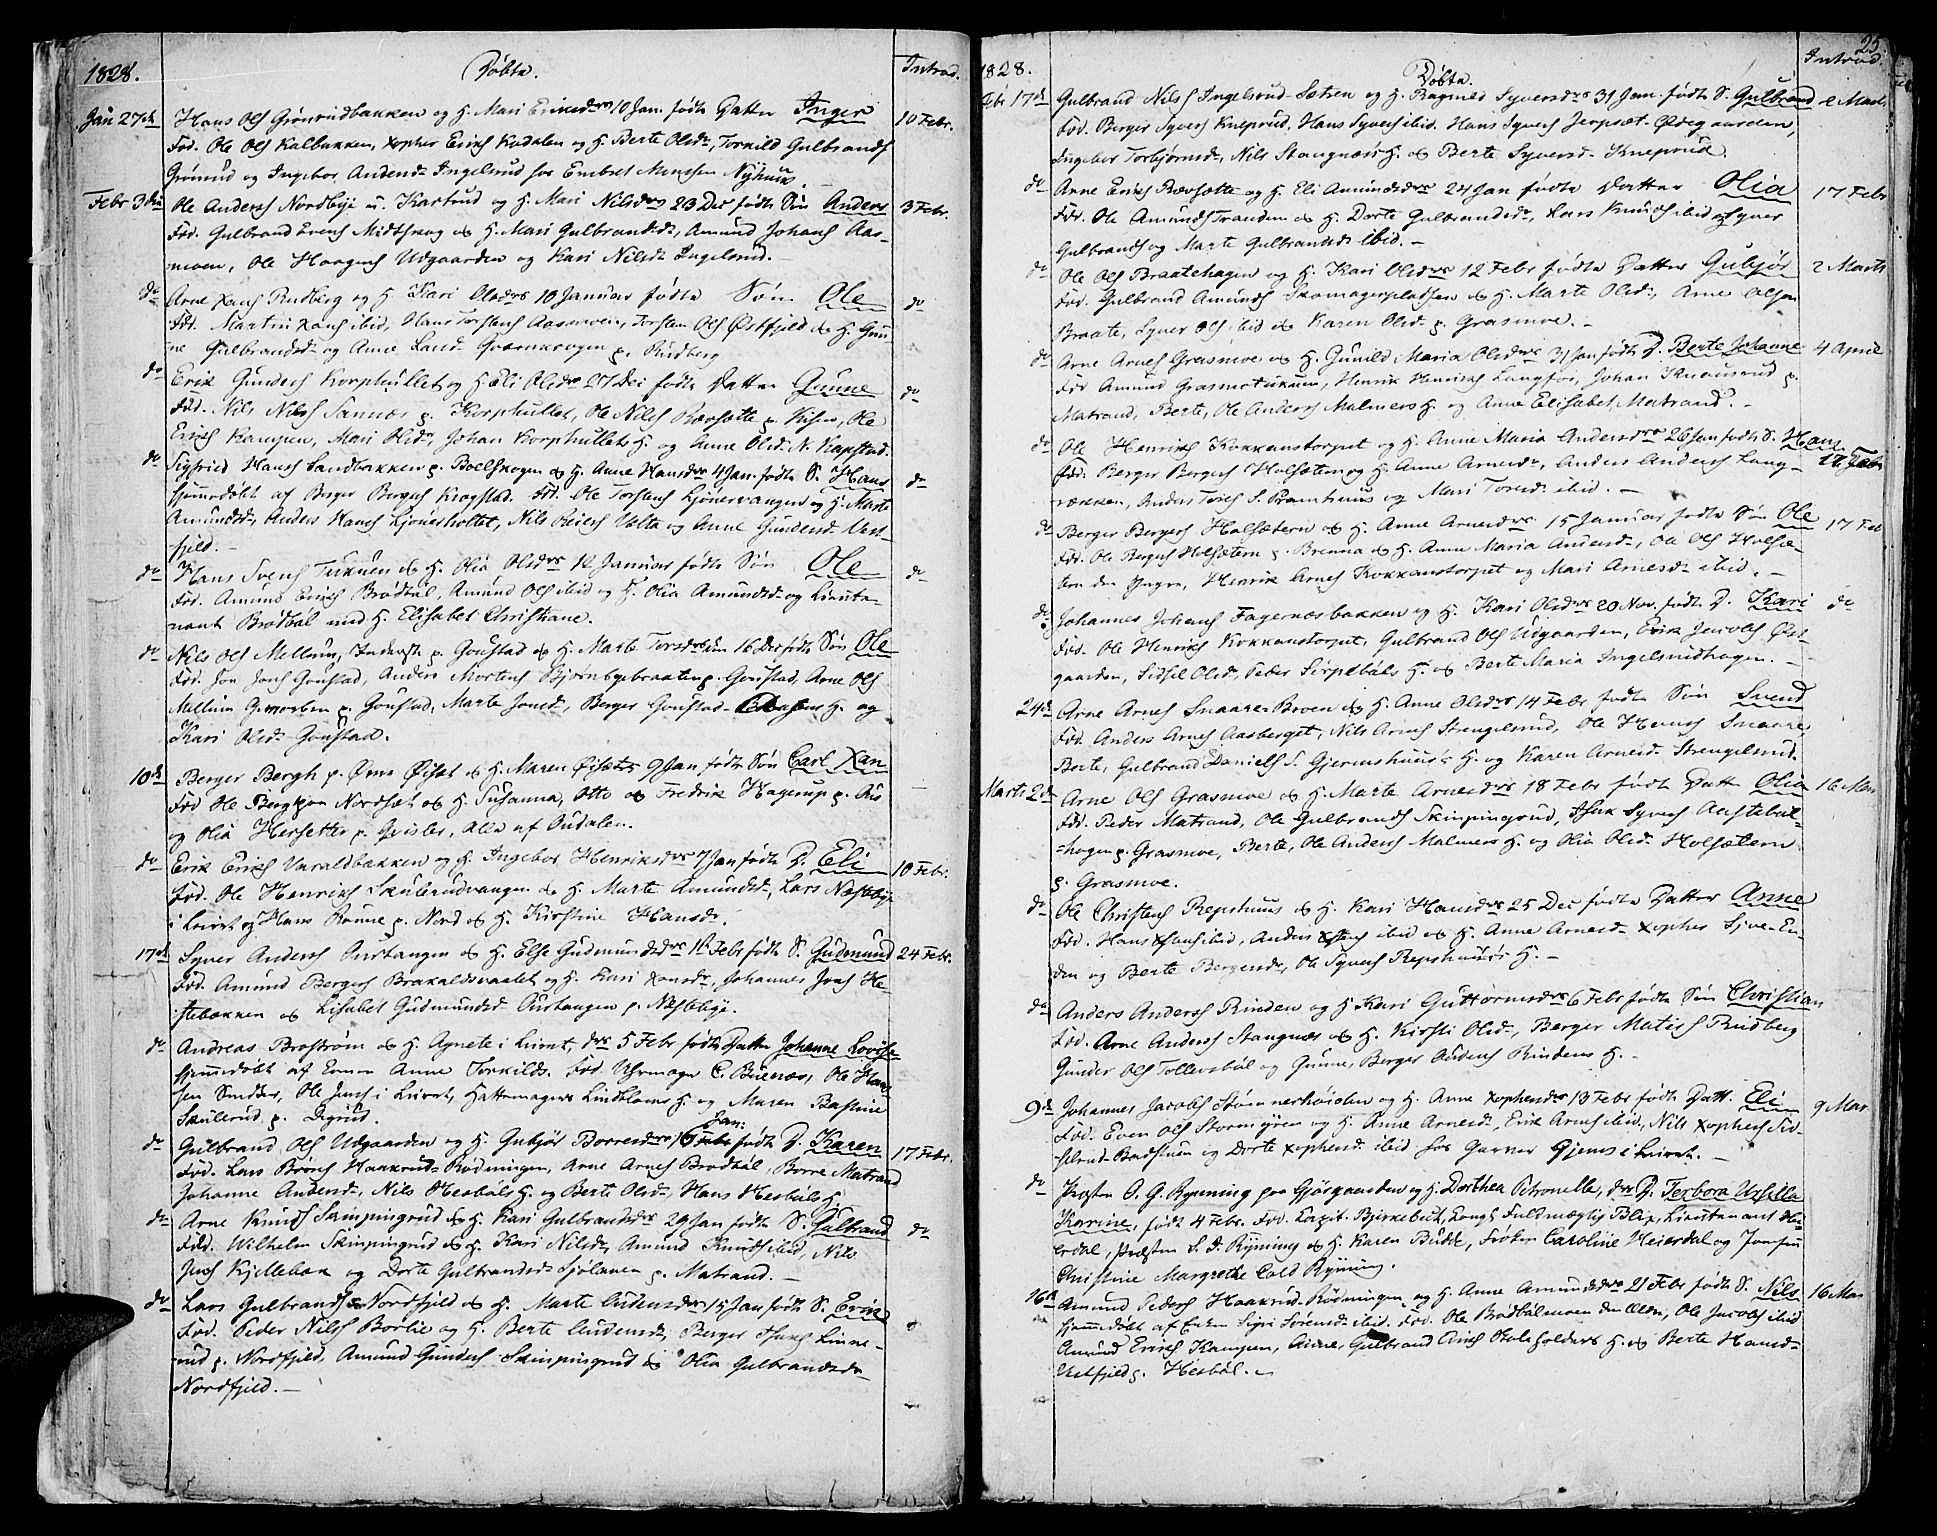 1828. Døbte. Introd.
Jan 27de Hans Ols Grönrudbakken og H. Mari Eriksdr 10 Jan. födte Datter Inger 10 Febr.
Fad. Ole Ols Kalbakken, Xopher Erichs Kadalen og H. Berte Olsdr, Torkild Gulbrands
Grönrud og Ingebor Andersdr Ingelsrud hos Embret Monssen Nyhuus.
Febr 3die Ole Anders Nordbye u. Kastrud og H. Mari Nilsdr 23 Dec födte Sön Anders 3 Febr.
Fad. Gulbrand Evens Midtskog og H. Mari Gulbrandsdr, Amund Johans Aas-
moen, Ole Haagens Udgaarden og Kari Nilsdr Ingelsrud. —
do Arne Hans Rudberg og H. Kari Olsdr 10 Januar födte Sön Ole do
Fad. Martin Hans ibid, Hans Torstens Aasmoen, Torsten Ols Østfjeld og H. Gun-
ne Gulbrandsdr og Anne Larsdr Qværnskogen p. Rudberg
do Erik Gunders Korphullet og H. Eli Olsdr 27 Dec födte Datter Gunne do
Fad. Nils Nils Sannæs p. Korphullet, Ole Nils Ravsætte p. Visen, Ole
Erichs Kampen, Mari Olsdr, Johan Korphullets H. og Anne Olsdr N. Kapstad.
do Sigfried Hans Sandbakken p. Boelskogen og H. Anne Hansdr 4 Jan. födte S. Hans do
hjemedøbt af Berger Bergers Krogstad. Fad. Ole Torstens Ljönervangen og H. Marte
Amundsdr, Anders Hans Ljönerholtet, Nils Peders Velta og Anne Gundersdr Vest-
fjeld. —
do Hans Svens Tukuen og H. Olia Olsdr 12 Januar födte Sön Ole do
Fad. Amund Erichs Brødbøl, Amund Ols ibid og H. Olia Amundsdr og Lieute-
nant Brødbøl med H. Elisabet Christiane.
do Nils Ols Mellum, Inderst p. Goustad og H. Marte Torsdr 16 Dec födte Sön Ole
Fad. Jon Jons Goustad, Anders Mortens Bjørnbyebraaten p. Goustad, Arne Ols
Mellum p. Goustad, Marte Jonsdr, Berger Goustad H. og
Kari Olsdr Goustad.
10de Berger Bergh p. Øvre Øiset og H. Maren Øisæter 9 Jan födte Sön Carl Xan —
Fad Ole Berg Nordsæt og H. Susanna, Otto og Fredrik Hagerup p. Aas
og Olia Hersetter p. Geisler, Alle af Oudalen.
do Erik Erichs Varaldbakken og H. Ingebor Henriksdr 7 Jan födte D. Eli 10 Febr.
Fad. Ole Henrichs Skulerudvangen og H. Marte Amundsdr, Lars Næstebye
i Leiret og Hans Rønne p. Nord og H. Kirstine Hansdr.
17de Syver Anders Ourtangen og H. Else Gudmundsdr 1 Febr födte S. Gudmund 24 Febr.
Fad. Amund Bergers Brakaldsvaalet og H. Kari Hansdr, Johannes Jons He-
stebækken og Lisabet Gudmundsdr Ourtangen p. Næstebye.
do Andreas Broström og H. Agnete i Leiret, drs 5 Febr födte Datter Johanne Lovise
hjemedöbt af Even Anne Torkilds. Fad. Uhrmager C. Buenæs, Ole Han-
sen Smidder, Ole Jens i Leiret, Hattemagers Lindbloms H. og Maren Bastine
Skulerud p. Digrud.
do Gulbrand Ols Udgaarden og H. Gubjør Borresdr 16 Jan: födte D. Karen 17 Febr.
Fad. Lars Brönes Haakrud-Rødningen, Arne Arnes Brodbøl, Borre Matrand
Johanne Andersdr, Nils Hesbøls H. og Berte Olsdr, Hans Hesbøls H.
do Arne Knuds Skinpingrud og H. Kari Gulbrandsdr 29 Jan födte S. Gulbrand do
Fad. Wilhelm Skinpingrud og H. Kari Nilsdr, Amund Knuds ibid, Nils
Jens Kjellebæk og Dorte Gulbrandsdr Sjölauen p. Matrand. —
do Lars Gulbrands Nordfjeld og H. Marte Andersdr 15 Jan födte S. Erik
Fad. Peder Nils Börlie og H. Berte Andersdr, Berger Isaks Linne-
rud p. Nordfjeld, Amund Gunders Skinpingrud og Olia Gulbrandsdr
Nordfjeld. —
25
1828. Døbte. Introd.
Febr 17de Gulbrand Nils Ingelsrud-Sætren og H. Ragnild Syversdr 31 Jan. födte S. Gulbrand 2 Mart.
Fad. Berger Syvers Kneprud, Hans Syvers ibid. Hans Syvers Jerpset-Ødegaarden,
Ingebor Torbjørnsdr, Nils Stangnæs H. og Berte Syversdr Kneprud.
do Arne Erichs Rævsætte og H. Eli Amundsdr 24 Jan födte Datter Olia 17 Febr
Fad. Ole Amunds Tranden og H. Dorte Gulbrandsdr, Lars Knuds ibid og Syver
Gulbrands og Marte Gulbrandsdr ibid. —
do Ole Ols Braatehagen og H. Kari Olsdr 12 Febr födte Datter Gubjør 2 Marts
Fad. Gulbrand Amunds Skomagerpladsen og H. Marte Olsdr, Arne Olsen
Braate, Syver Ols ibid og Karen Olsdr p. Grasmoe. —
do Arne Arnes Grasmoe og H. Gunild Maria Olsdr 31 Jan födte D. Berte Johanne 4 April
Fad Amund Grasmotukuen, Henrik Henrichs Langfos, Johan Knausrud p.
Matrand, Berte, Ole Anders Malmers H. og Anne Elisabet Matrand. —
do Ole Henrichs Kokkanstorpet og H. Anne Maria Andersdr 26 Jan födte S. Hans 17 Febr
Fad. Berger Bergers Holsæten og H. Anne Arnesdr, Anders Anders Lang-
rækken, Anders Tores S. Pramhuus og Mari Toresdr ibid. —
do Berger Bergers Holsætern og H. Anne Arnesdr 15 Januar födte Sön Ole 17 Feb
Fad. Ole Bergers Holsætern p. Brenna og H. Anne Maria Andersdr, Ole Ols Holsæ-
ten den Yngre, Henrik Arnes Kokkanstorpet og Mari Arnesdr ibid. —
do Johannes Johans Fagernæsbakken og H. Kari Olsdr 20 Nov. födte D. Kari do
Fad. Ole Henrichs Kokkanstorpet, Gulbrand Ols Udgaarden, Erik Jacobs Øst-
gaarden, Sidsel Olsdr, Peder Sörpebøls H. og Berte Maria Ingelsrudhagen. —
24de Arne Arnes Snaare-Broen og H. Anne Olsdr 14 Febr födte Sön Svend
Fad. Anders Arnes Aasberget, Nils Arnes Strengelsrud, Ole Hans Snaare
Berte, Gulbrand Daniels S. Gjermshuus's H. og Karen Arnesdr Strengelsrud.
Marts 2de Arne Ols Grasmoe og H. Marte Arnesdr 18 Febr födte Datt Olia 16 Mar
Fad. Peder Matrand, Ole Gulbrands Skinpingrud, Isak Syvers Aastebøl-
=hagen p. Grasmoe, Berte, Ole Anders Malmers H. og Olia Olsdr Holsætern
p. Grasmoe.
do Ole Christens Repshuus og H. Kari Hansdr 25 Dec födte Datter Anne
Fad. Hans Xstens ibid, Anders Xstens ibid og H. Anne Arnesdr Xopher Sjve-En-
den og Berte Bergersdr, Ole Syvers Repshuus's H. —
do Anders Anders Rinden og H. Kari Guttormsdr 6 Febr födte Sön Christian
Fad. Arne Anders Stangnæs og H. Kirsti Olsdr, Berger Matis Rudberg
Gunder Ols Tollevsbøl og Gunne, Berger Audens Rindens H. —
9de Johannes Jacobs Stømnerhøiden og H. Anne Xophersdr 13 Febr födte Datt. Eli 9 Mar
Fad. Even Ols Stormyren og H. Anne Arnesdr, Erik Arnes ibid, Nils Xophers Sid-
selrud-Badstuen og Dorte Xophersdr ibid hos Garver Gjems i Leiret. —
do Præsten O. G. Rynning paa Gjørgaarden og H. Dorthea Petronelle, drs D. Terbora Ursilla
Karine, født 4 Febr. Fad. Capit. Bjirkebeck, Fuldmægtig Blix, Lieutenant He-
erdal, Præsten S. J. Ryning og H. Karen Budde, Frøken Caroline Heierdal og Jomfru
Christine Margrethe Cold Ryning.
16de Amund Peders Haakrud-Rødningen og H. Anne Amundsdr 21 Febr födte S. Nils 16 Mar
hjemedøbt af Enken Sigri Sörensdr ibid. Fad. Ole Brødbølmoen den Ældre, Ole Jacobs ibid
Amund Erichs Kampen, Anne, Gulbrand Erichs H. og Berte Hansdr
Vestfjeld p. Hesbøl. —